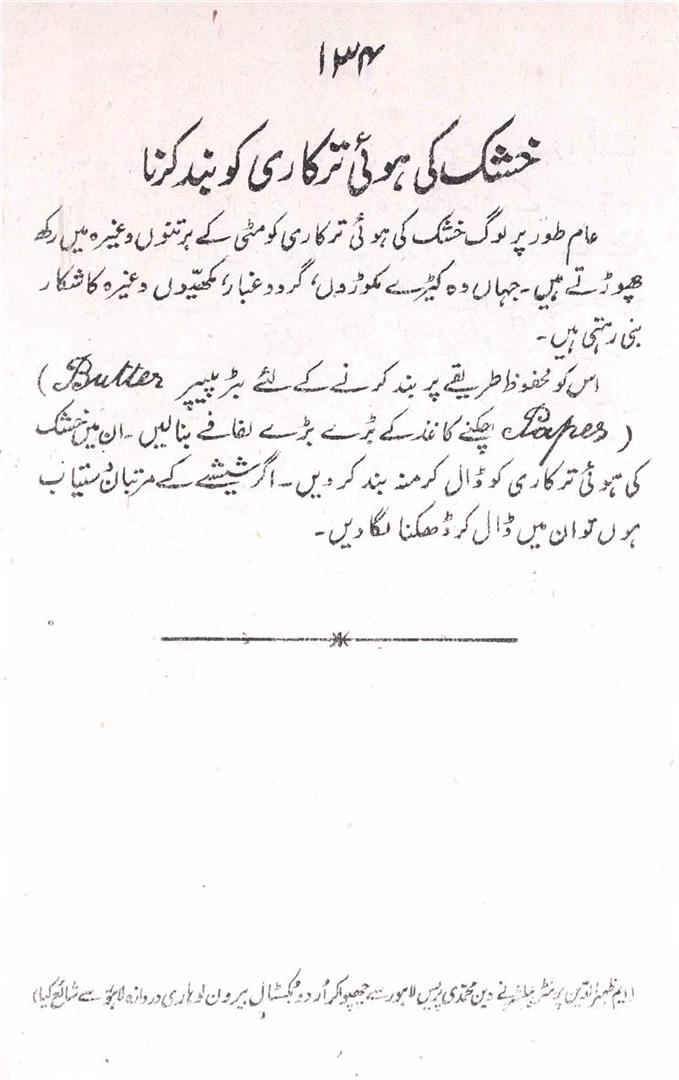 ۱۳۴
خشک کی ہوئی ترکاری کو بند کرنا
عام طور پر لوگ خشک کی ہوئی ترکاری کو مٹی کے برتنوں وغیرہ میں رکھ
چھوڑتے ہیں۔ جہاں وہ کیڑے مکوڑوں، گرد و غبار، مکھیّوں وغیرہ کا شکار
بنی رہتی ہیں۔
اس کو محفوظ طریقے پر بند کرنے کے لئے بٹر پیپر (Butter
Paper) چکنے کاغذ کے بڑے بڑے لفافے بنا لیں۔ ان میں خشک
کی ہوئی ترکاری کو ڈال کر منہ بند کر دیں۔ اگر شیشے کے مرتبان دستیاب
ہوں تو ان میں ڈال کر ڈھکنا لگا دیں۔
(ایم ظہیر الدّین پرنٹر پبلشر نے دین محمّدی پریس لاہور سے چھپوا کر اُردو بکسٹال بیرون لوہاری دروازہ لاہور سے شائع کیا)